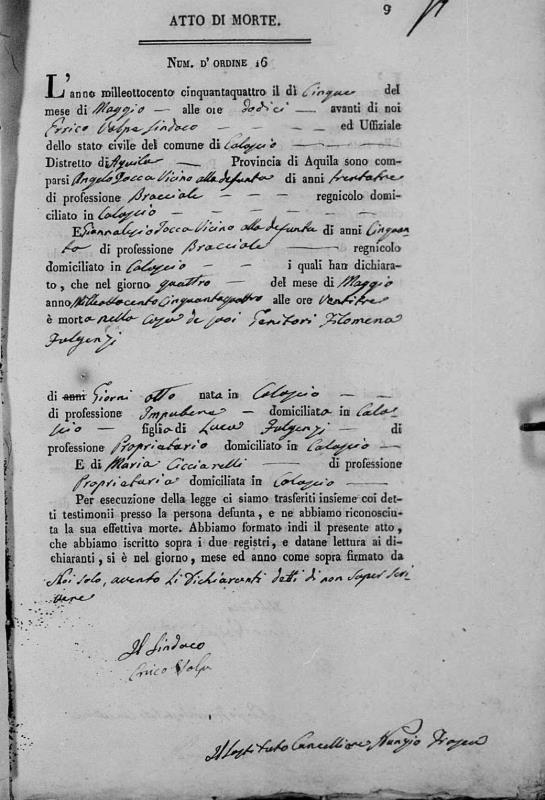 9
ATTO DI MORTE.
NUM. D' ORDINE 16
L'anno milleottocento cinquantaquattro il dì Cinque del
mese di Maggio alle ore dodici avanti di noi
Errico Volpe Sindaco ed Uffiziale
dello stato civile del comune di Calascio
Distretto di Aquila Provincia di Aquila sono com-
parsi Angelo Vicino alla defunta di anni trentatre
di professione Bracciale regnicolo domi-
ciliato in Calascio
E Vicino alla defunta di anni Cinquan-
ta di professione Bracciale regnicolo
domiciliato in Calascio i quali han dichiara-
to, che nel giorno quattro del mese di Maggio
anno Milleottocento Cinquantaquattro alle ore Ventitre
è morta nella casa de suoi Genitori Filomena
Fulgenzi
di anni Giorni otto nata in Calascio
di professione Impubere domiciliata in Cala-
scio figlia di Luca Fulgenzi di
professione Proprietario domiciliato in Calascio
E di Maria Cicciarelli di professione
Proprietaria domiciliata in Calascio
Per esecuzione della legge ci siamo trasferiti insieme coi det-
ti testimonii presso la persona defunta, e ne abbiamo riconosciu-
ta la sua effettiva morte. Abbiamo formato indi il presente atto,
che abbiamo iscritto sopra i due registri, e datane lettura ai di-
chiaranti, si è nel giorno, mese ed anno come sopra firmato da
Noi solo, avento li Dichiaranti detti di non saper scri-
vere
Il Sindaco
Errico Volpe
Il Sostituto Cancelliere Nunzio